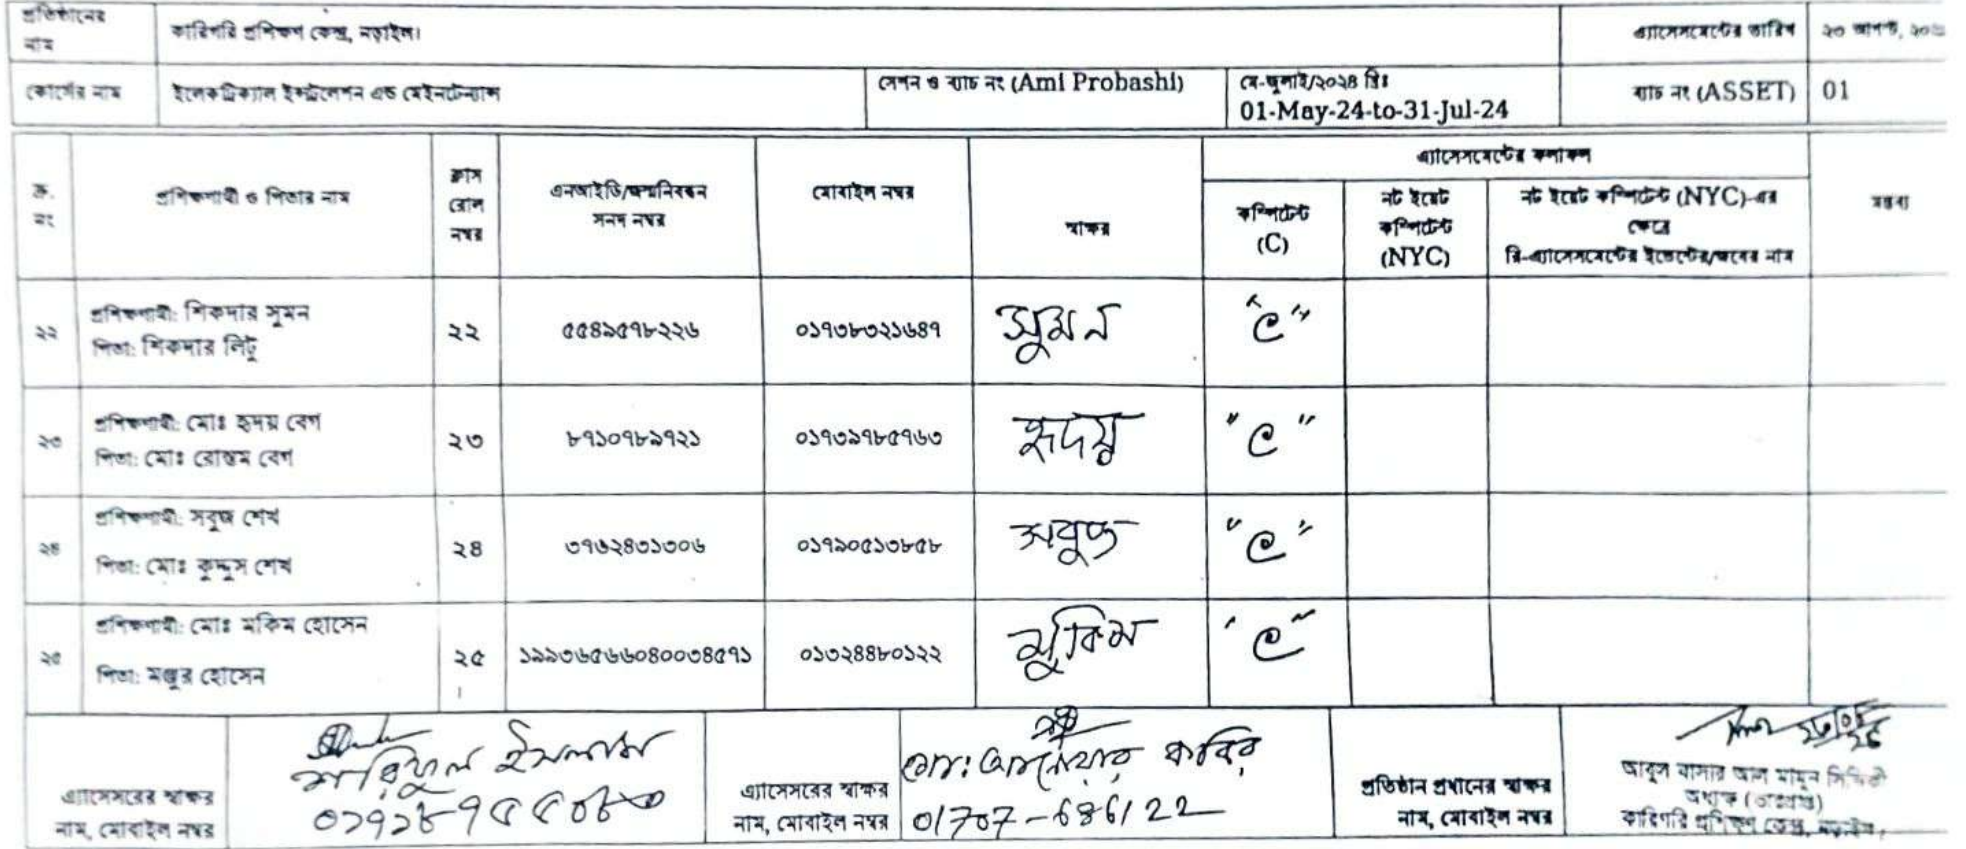 প্রতিষ্ঠানের নাম
কারিগরি প্রশিক্ষণ কেন্দ্র, নড়াইল।
এ্যাসেসমেন্টের তারিখ
২৩ আগস্ট,
কোর্সের নাম
ইলেকট্রিক্যাল ইন্সটলেশন এন্ড মেইনটেন্যান্স
সেশন ও ব্যাচ নং (Ami Probashi)
মে-জুলাই/২০২৪ খ্রিঃ
01-May-24-to-31-Jul-24
ব্যাচ নং (ASSET)
01
ক্র. নং
প্রশিক্ষণার্থী ও পিতার নাম
ক্লাস রোল নম্বর
এনআইডি/জন্মনিবন্ধন
সনদ নম্বর
মোবাইল নম্বর
স্বাক্ষর
এ্যাসেসমেন্টের ফলাফল
কম্পিটেন্ট
(C)
নট ইয়েট
কম্পিটেন্ট
(NYC)
নট ইয়েট কম্পিটেন্ট (NYC)-এর
ক্ষেত্রে
রি-এ্যাসেসমেন্টের ইভেন্টের/জবের নাম
মন্তব্য
২২
প্রশিক্ষণার্থী: শিকদার সুমন
পিতা: শিকদার লিটু
২২
৫৫৪৯৫৭৮২২৬
০১৭৩৮৩২১৬৪৭
সুমন
"C"
২৩
প্রশিক্ষণার্থী: মোঃ হৃদয় বেগ
পিতা: মোঃ রোস্তম বেগ
২৩
৮৭১০৭৮৯৭২১
০১৭৩৯৭৮৫৭৬৩
হৃদয়
"C"
২৪
প্রশিক্ষণার্থী: সবুজ শেখ
পিতা: মোঃ কুদ্দুস শেখ
২৪
৩৭৬২৪৩১৩০৬
০১৭৯০৫১৩৮৫৮
সবুজ
"C"
২৫
প্রশিক্ষণার্থী: মোঃ মকিম হোসেন
পিতা: মঞ্জুর হোসেন
২৫
১৯৯৩৬৫৬৬০৪০০৩৪৫৭১
০১৩২৪৪৮০১২২
মুকিম
"C"
এ্যাসেসরের স্বাক্ষর
নাম, মোবাইল নম্বর
শরিফুল ইসলাম
এ্যাসেসরের স্বাক্ষর
নাম, মোবাইল নম্বর
মো: আনোয়ার কবির
01707-686122
প্রতিষ্ঠান প্রধানের স্বাক্ষর
নাম, মোবাইল নম্বর
আবুল বাসার আল মামুন সিদ্দিকী
অধ্যক্ষ (ভারপ্রাপ্ত)
কারিগরি প্রশিক্ষণ কেন্দ্র, নড়াইল।